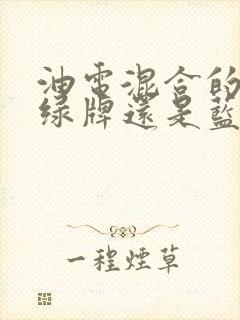 油電混合的
綠牌還是藍
一程煙草